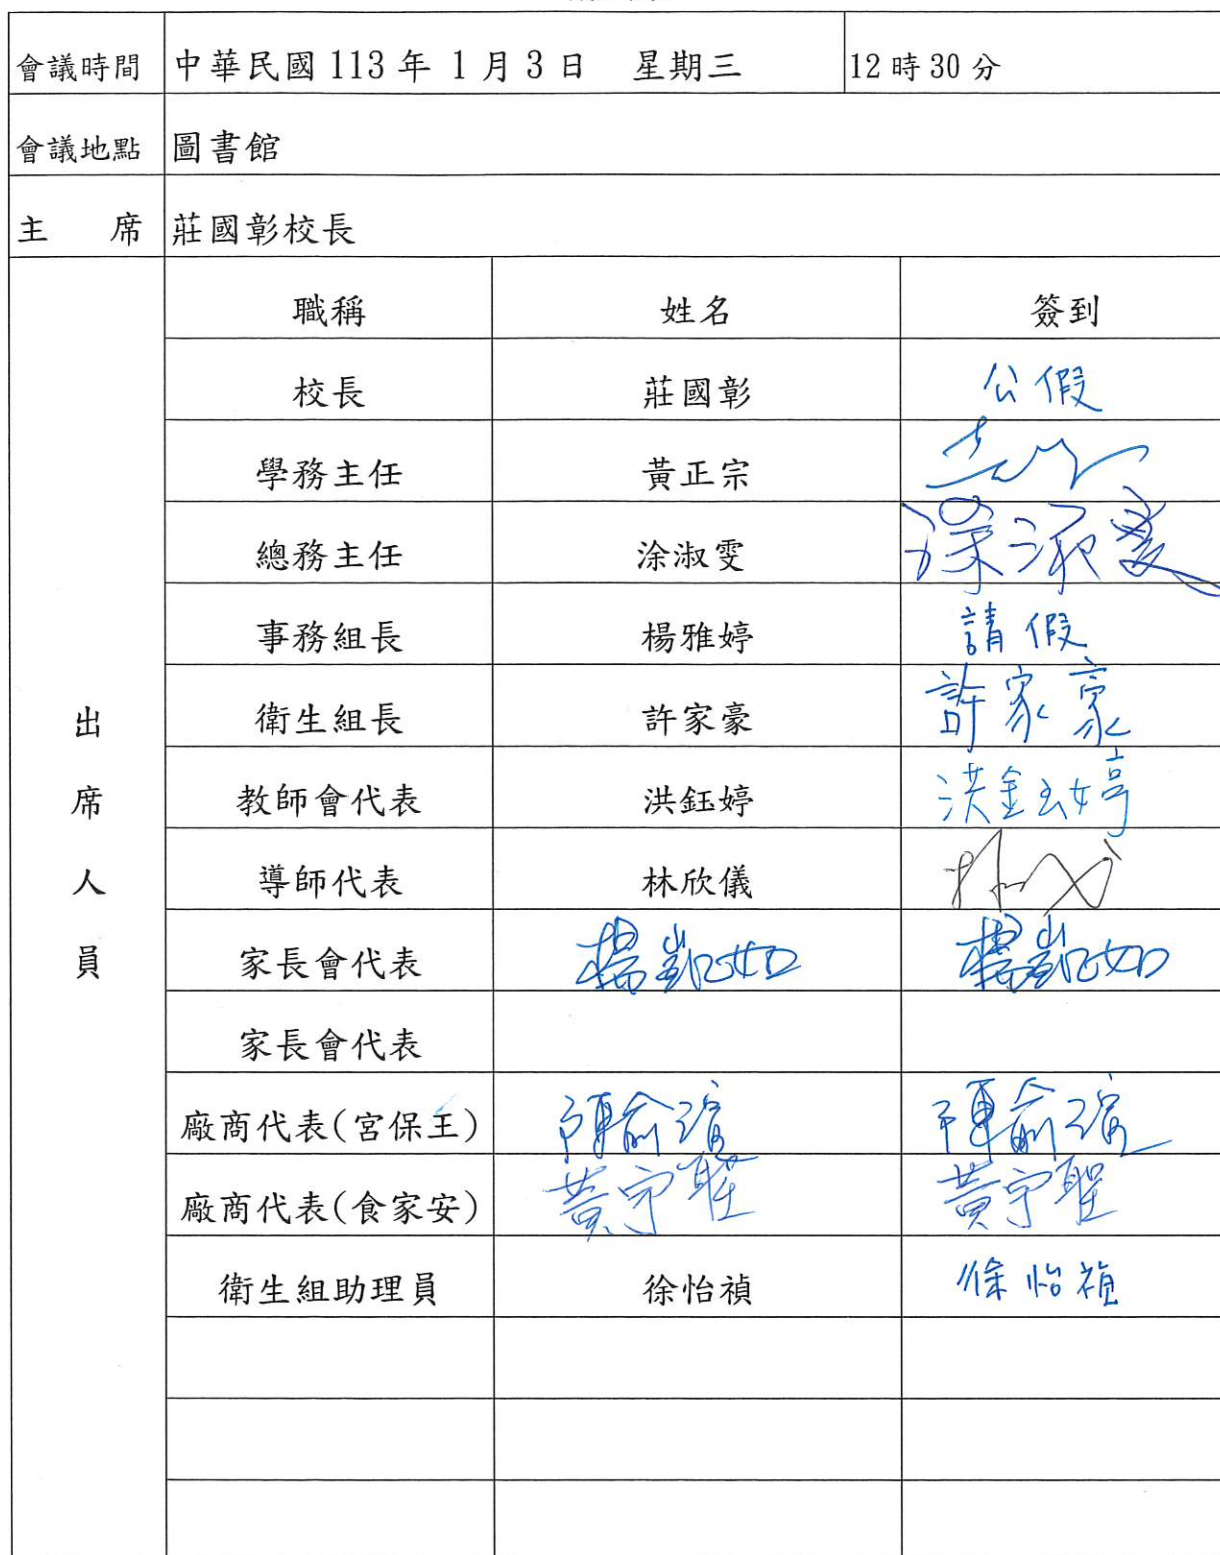 會議時間 中華民國 113 年 1 月 3 日 星期三 12 時 30 分
會議地點 圖書館
主 席 莊國彰校長
出席人員
職稱 姓名 簽到
校長 莊國彰 公假
學務主任 黃正宗
總務主任 涂淑雯 涂淑雯
事務組長 楊雅婷 請假
衛生組長 許家豪 許家豪
教師會代表 洪鈺婷 洪鈺婷
導師代表 林欣儀
家長會代表 楊凱如 楊凱如
家長會代表
廠商代表(宮保王) 陳俞瑄 陳俞瑄
廠商代表(食家安) 黃宇聖 黃宇聖
衛生組助理員 徐怡禎 徐怡禎